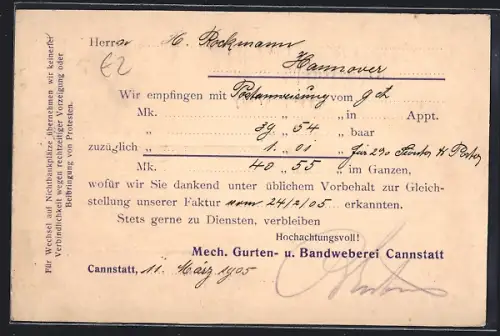 Für Wechsel auf Nichtbankplätze übernehmen wir keinerlei
Verbindlichkeit wegen rechtzeitiger Vorzeigung oder
Beibringung von Protesten.
Herrn H. Rockmann
E2
Hannover
Wir empfingen mit Postanweisung vom 9 ct
Mk. „ in Appt.
„ 39 „ 54 „ baar
zuzüglich „ 1 „ 01 „ für 2% Sconto & Porto
Mk. 40 „ 55 „ im Ganzen,
wofür wir Sie dankend unter üblichem Vorbehalt zur Gleich-
stellung unserer Faktur vom 24/2/05 erkannten.
Stets gerne zu Diensten, verbleiben
Hochachtungsvoll!
Mech. Gurten- u. Bandweberei Cannstatt
Cannstatt, 11. März 1905